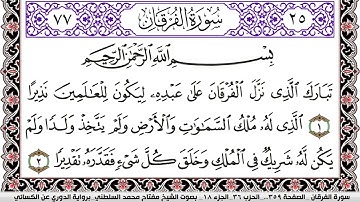 ٢٥ سُورَةُ الفُرْقَانِ ٧٧
بِسْمِ اللَّهِ الرَّحْمَٰنِ الرَّحِيمِ
تَبَارَكَ الَّذِى نَزَّلَ الْفُرْقَانَ عَلَىٰ عَبْدِهِ لِيَكُونَ لِلْعَالَمِينَ نَذِيرًا
١ الَّذِى لَهُ مُلْكُ السَّمَٰوَٰتِ وَالْأَرْضِ وَلَمْ يَتَّخِذْ وَلَدًا وَلَمْ
يَكُن لَّهُ شَرِيكٌ فِى الْمُلْكِ وَخَلَقَ كُلَّ شَىْءٍ فَقَدَّرَهُ تَقْدِيرًا ٢
سورة الفرقان الصفحة ٣٥٩... الحزب ٣٦ الجزء ١٨ بصوت الشيخ مفتاح محمد السلطني برواية الدوري عن الكسائي